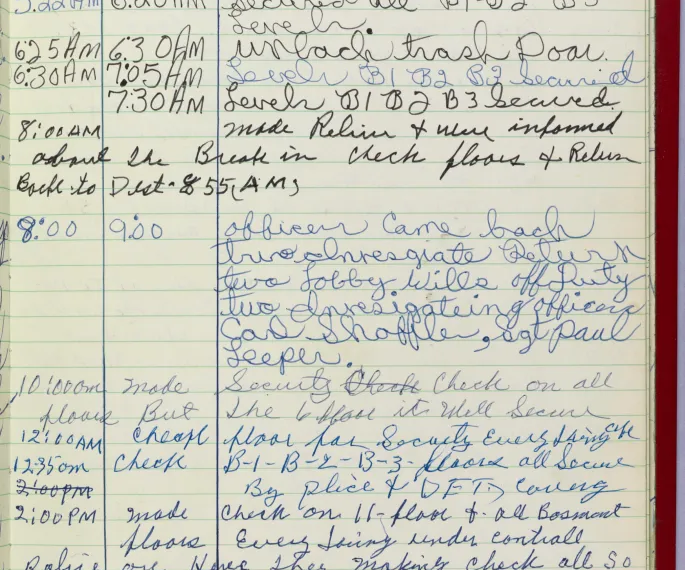 5:22AM 6:20AM Secured all B1-B2 B3
Levels.
625AM 6:30AM unlock trash Door.
6:30AM 7:05AM Levels B1 B2 B3 Secured
7:30AM Levels B1 B2 B3 Secured.
8:00AM made Relieve & were informed
about the Break in check floors & Return
Back to Dest. 855(AM)
8:00 9:00 officer Came back
two Return
two Lobby Wills off Duty
two officers
Carl Shoffler, Sgt Paul
Leeper.
10:00am made Security Check Check on all
floors But the 6 floor it Well Secure
12:00AM floor for Security Every
12:35am check B-1-B-2-B-3-floors all Secure
2:00PM By plice &
2:00PM made check on 11-floor & all Basmont
floors Every under controll
making check all So